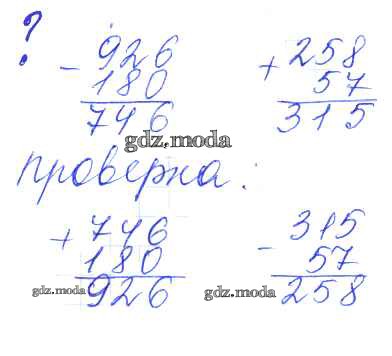 ?
- 926 + 258
180 57
746 315
gdz.moda
проверка:
+ 746 - 315
180 57
926 258
gdz.moda gdz.moda